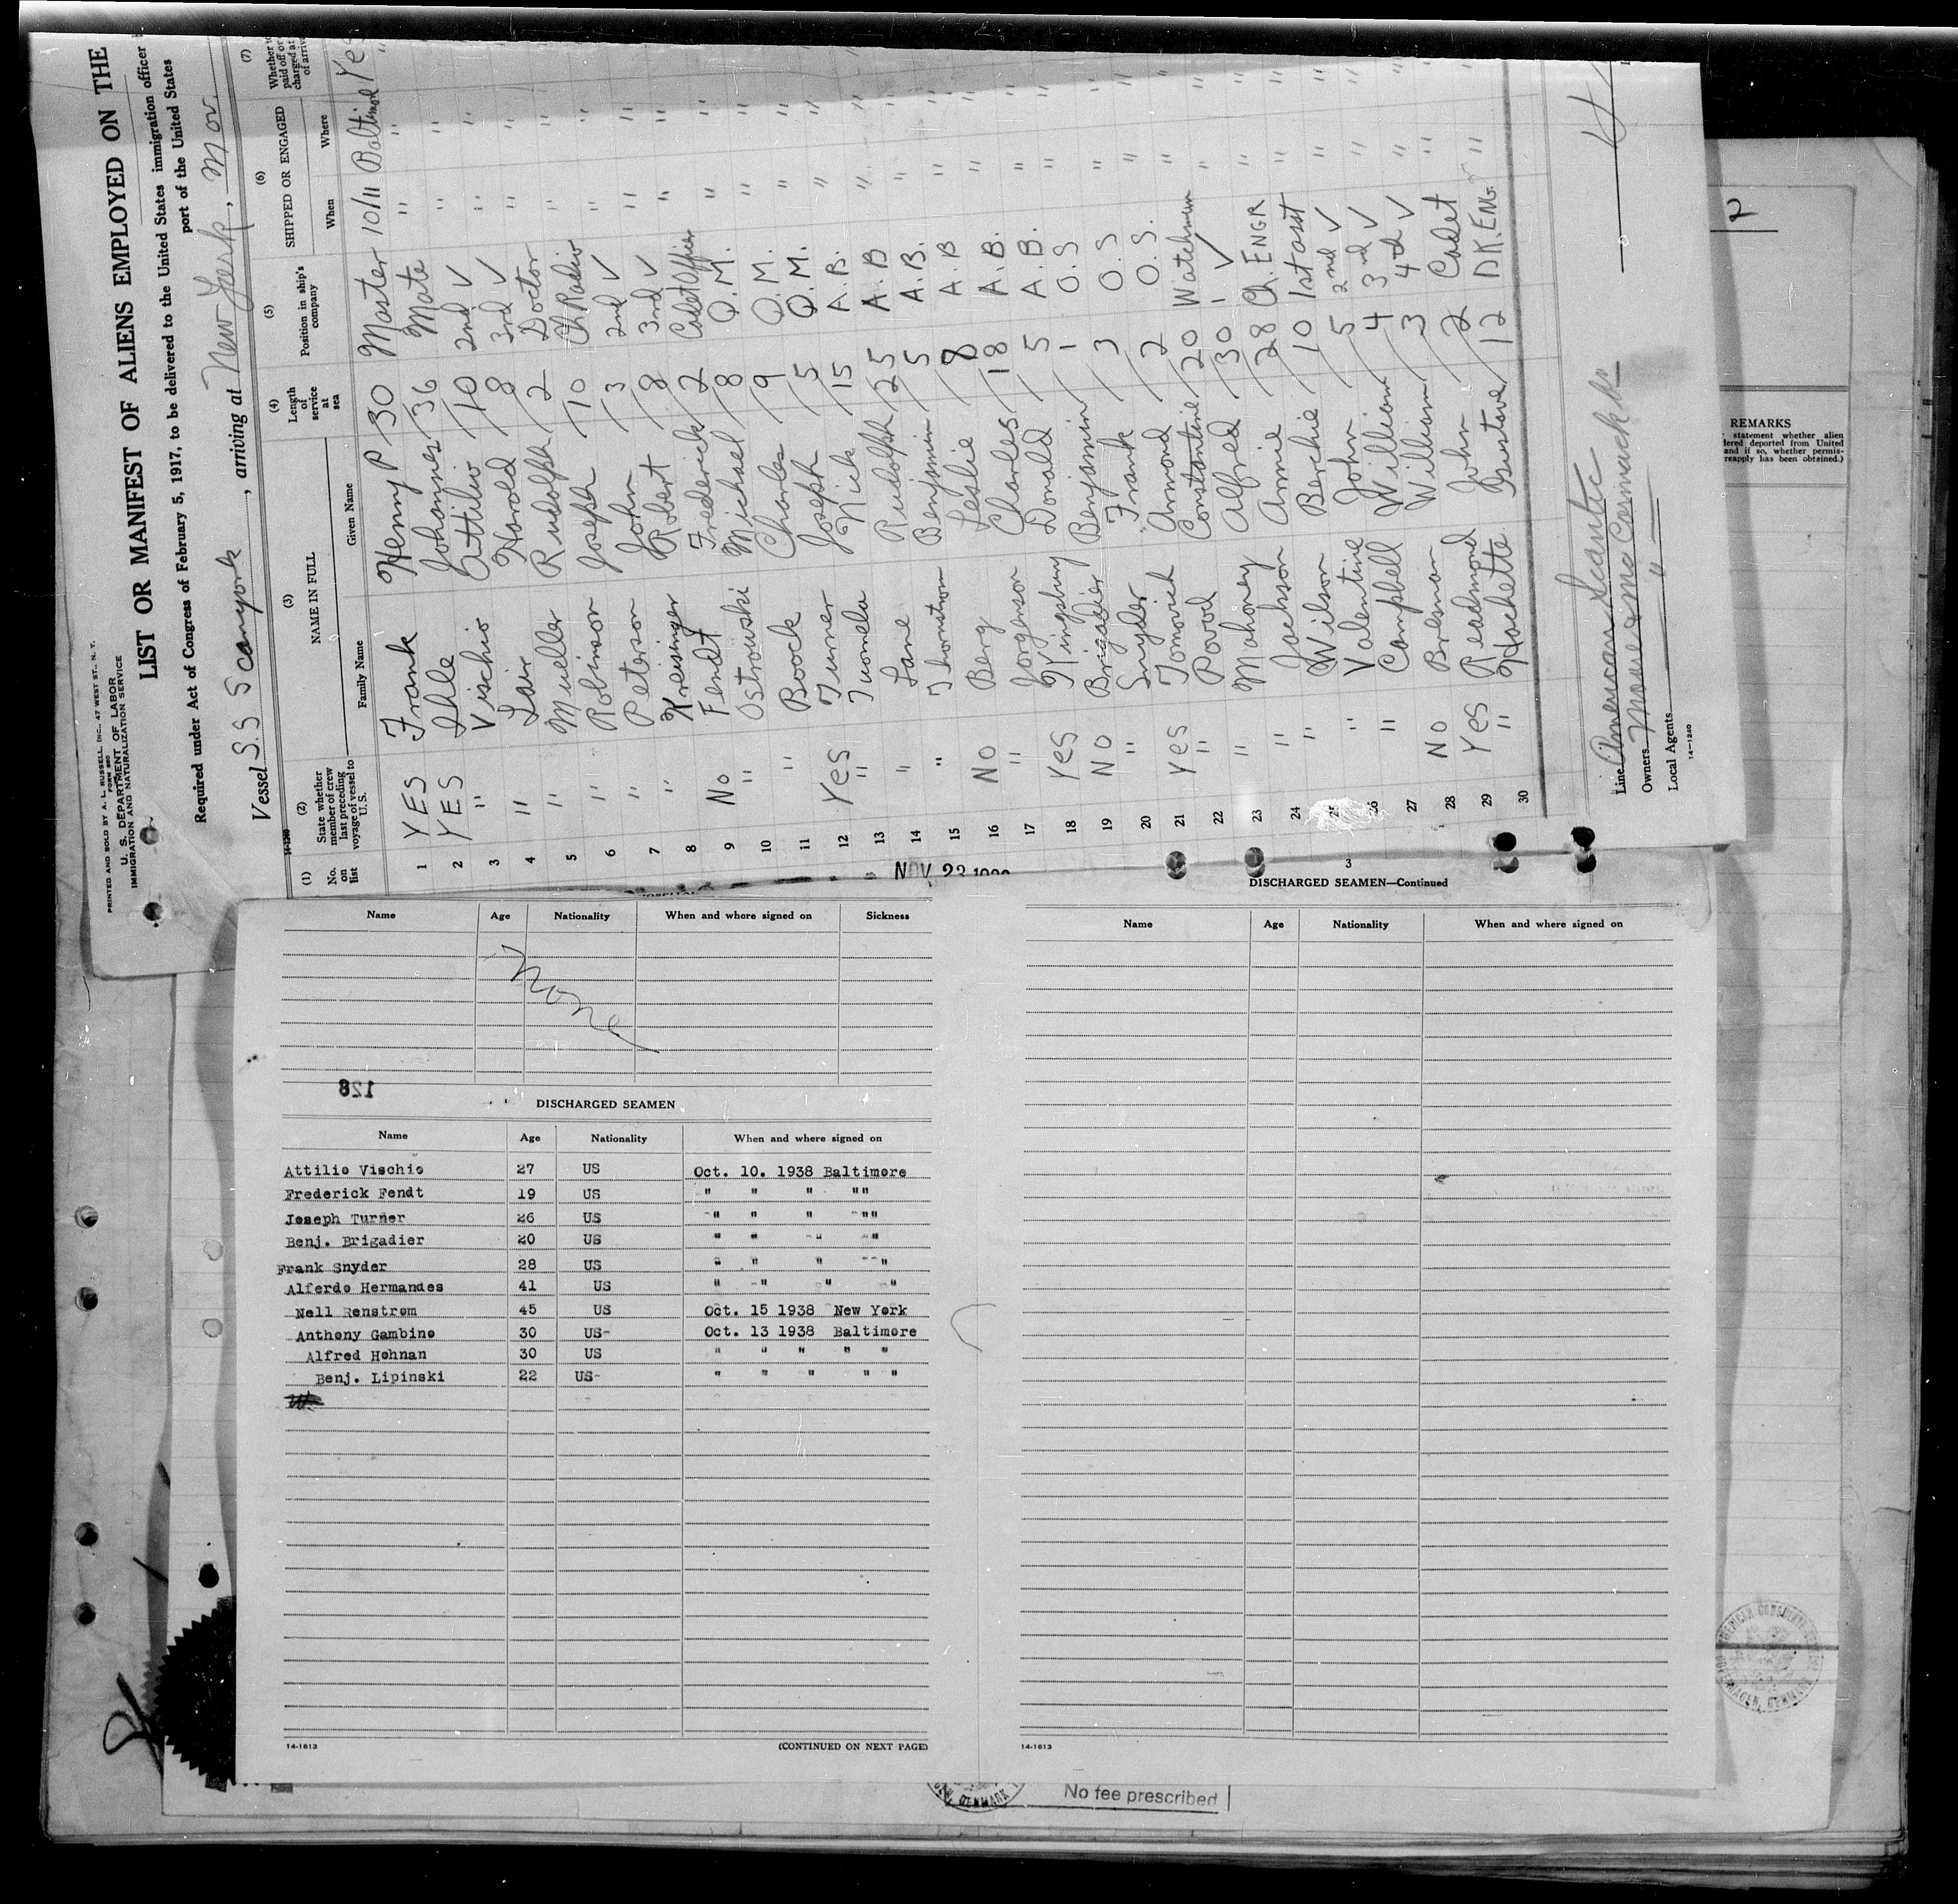 PRINTED AND SOLD BY A. L. RUSSELL, INC., 47 WEST ST., N. Y.
FORM 680
U. S. DEPARTMENT OF LABOR
IMMIGRATION AND NATURALIZATION SERVICE
LIST OR MANIFEST OF ALIENS EMPLOYED ON THE
Required under Act of Congress of February 5, 1917, to be delivered to the United States immigration officer
port of the United States
Vessel S.S Scanyork, arriving at New York, Nov.
(1) (2) (3) (4) (5) (6) (7)
No. on list
State whether member of crew last preceding voyage of vessel to U. S.
NAME IN FULL
Family Name Given Name
Length of service at sea
Position in ship's company
SHIPPED OR ENGAGED
When Where
1 YES Frank Henry P 30 Master 10/11 Baltimore Yes
2 YES Ihle Johannes 36 Mate " " "
3 " Vischio Attilio 10 2nd √ " "
4 " Lair Harold 8 3rd √ " "
5 " Mueller Rudolph 2 Doctor " "
6 " Robinson Joseph 10 Ch Radio " "
7 " Peterson John 3 2nd √ " "
8 " Kreisinger Robert 8 3rd √ " "
9 No Fendt Frederick 2 Cadet Officer " "
10 " Ostrowski Michael 8 Q.M. " "
11 " Boock Charles 9 Q.M. " "
12 Yes Turner Joseph 5 Q.M. " "
13 " Tuomela Nick 15 A.B. " "
14 " Lane Rudolph 25 A.B " "
15 " Thornstrom Benjamin 5 A.B. " "
16 No Berg Leslie 8 A.B " "
17 " Jorgenson Charles 18 A.B. " "
18 Yes Kingsbury Donald 5 A.B. " "
19 No Brigadier Benjamin 1 O.S " "
20 " Snyder Frank 3 O.S " "
21 Yes Tomovich Armond 2 O.S. " "
22 " Povod Constantine 20 Watchman " "
23 " Mahoney Alfred 30 1 √ " "
24 " Jackson Annie 28 Ch. ENGR " "
25 " Wilson Berchie 10 1st asst " "
26 " Valentine John 5 2nd √ " "
27 " Campbell William 4 3rd √ " "
28 No Bresnan William 3 4th √ " "
29 Yes Readmond John 2 Cadet " "
30 " Hachette Gustave 12 DK.ENG. " "
Line American Scantic
Owners Moore & McCormack Co
Local Agents "
14—1240
REMARKS
statement whether alien
dered deported from United
and if so, whether permis-
reapply has been obtained.)
NOV 23
Name Age Nationality When and where signed on Sickness
None
128
DISCHARGED SEAMEN
Name Age Nationality When and where signed on
Attilio Vischio 27 US Oct. 10. 1938 Baltimore
Frederick Fendt 19 US " " " ""
Joseph Turner 26 US " " " ""
Benj. Brigadier 20 US " " " "
Frank Snyder 28 US " " " "
Alferdo Hermandes 41 US " " " "
Nell Renstrom 45 US Oct. 15 1938 New York
Anthony Gambino 30 US- Oct. 13 1938 Baltimore
Alfred Hohnan 30 US " " " " "
Benj. Lipinski 22 US- " " " " "
14-1613
(CONTINUED ON NEXT PAGE)
3
DISCHARGED SEAMEN—Continued
Name Age Nationality When and where signed on
14-1613
No fee prescribed
DENMARK
AMERICAN CONSULATE
COPENHAGEN, DENMARK